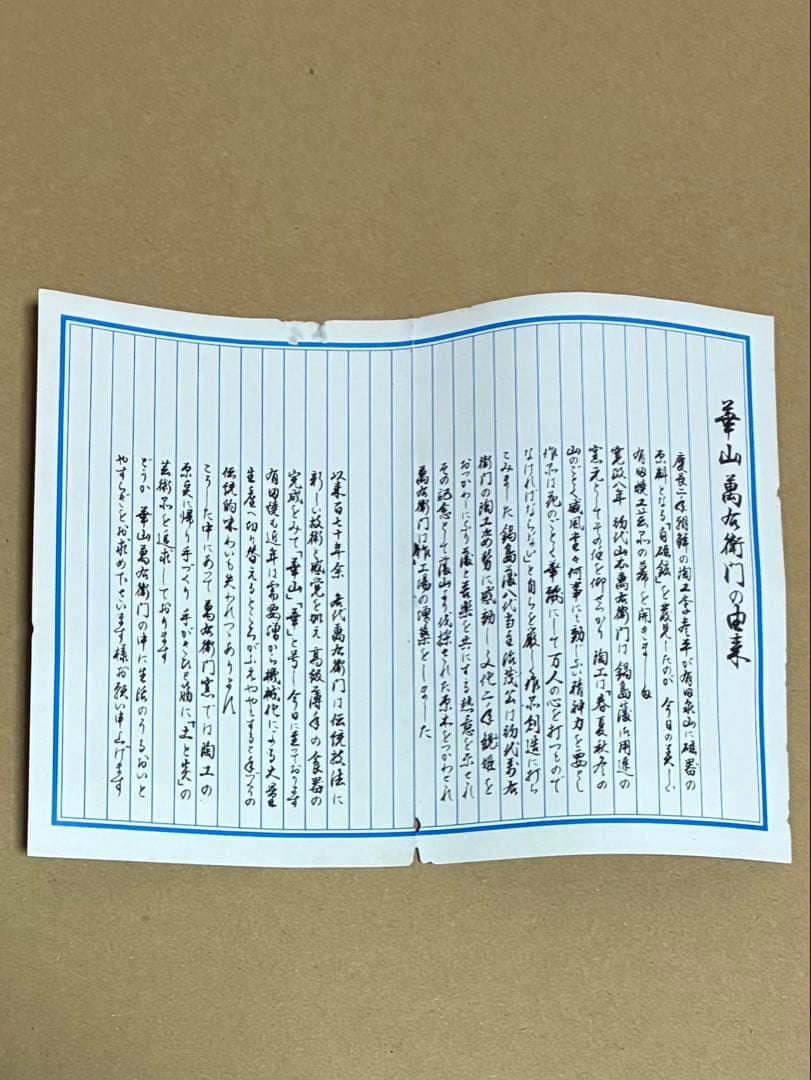 華山萬右衛門の由来
慶長二年朝鮮の陶工李参平が有田泉山に磁器の
原料となる「白磁鉱」を発見したのが 今日の美しい
有田焼工芸品の幕を開きました
寛政八年 初代山本萬右衛門は 鍋島藩御用達の
窯元としてその任を仰せつかり 陶工は「春夏秋冬の
山のごとく威風堂々何事にも動じない精神力を要し
作品は花のごとく華麗にして万人の心を打つもので
なければならない」と自らを厳しく作品創造に打ち
こみました 鍋島藩八代当主治茂公は初代萬右
衛門の陶工姿勢に感動し 文化二年親姫を
おつかわしになり藩と苦楽を共にする熱意を示され
その記念として藩山より伐採された原木をつかわされ
萬右衛門は作工場の増築をしました
以来百七十年余 各代萬右衛門は伝統技法に
新しい技術と感覚を加え 高級薄手の食器の
完成をみて「華山」「華」と号し今日に至っております
有田焼も近年は需要増から機械化による大量
生産へ切り替えるところがふえややもすると手づくりの
伝統的味わいも失われつつあります
こうした中にあって 萬右衛門窯では陶工の
原点に帰り手づくり 手がきひと筋に「土と炎」の
芸術品を追求しております
どうか 華山萬右衛門の中に生活のうるおいと
やすらぎをお求め下さいます様お願い申し上げます